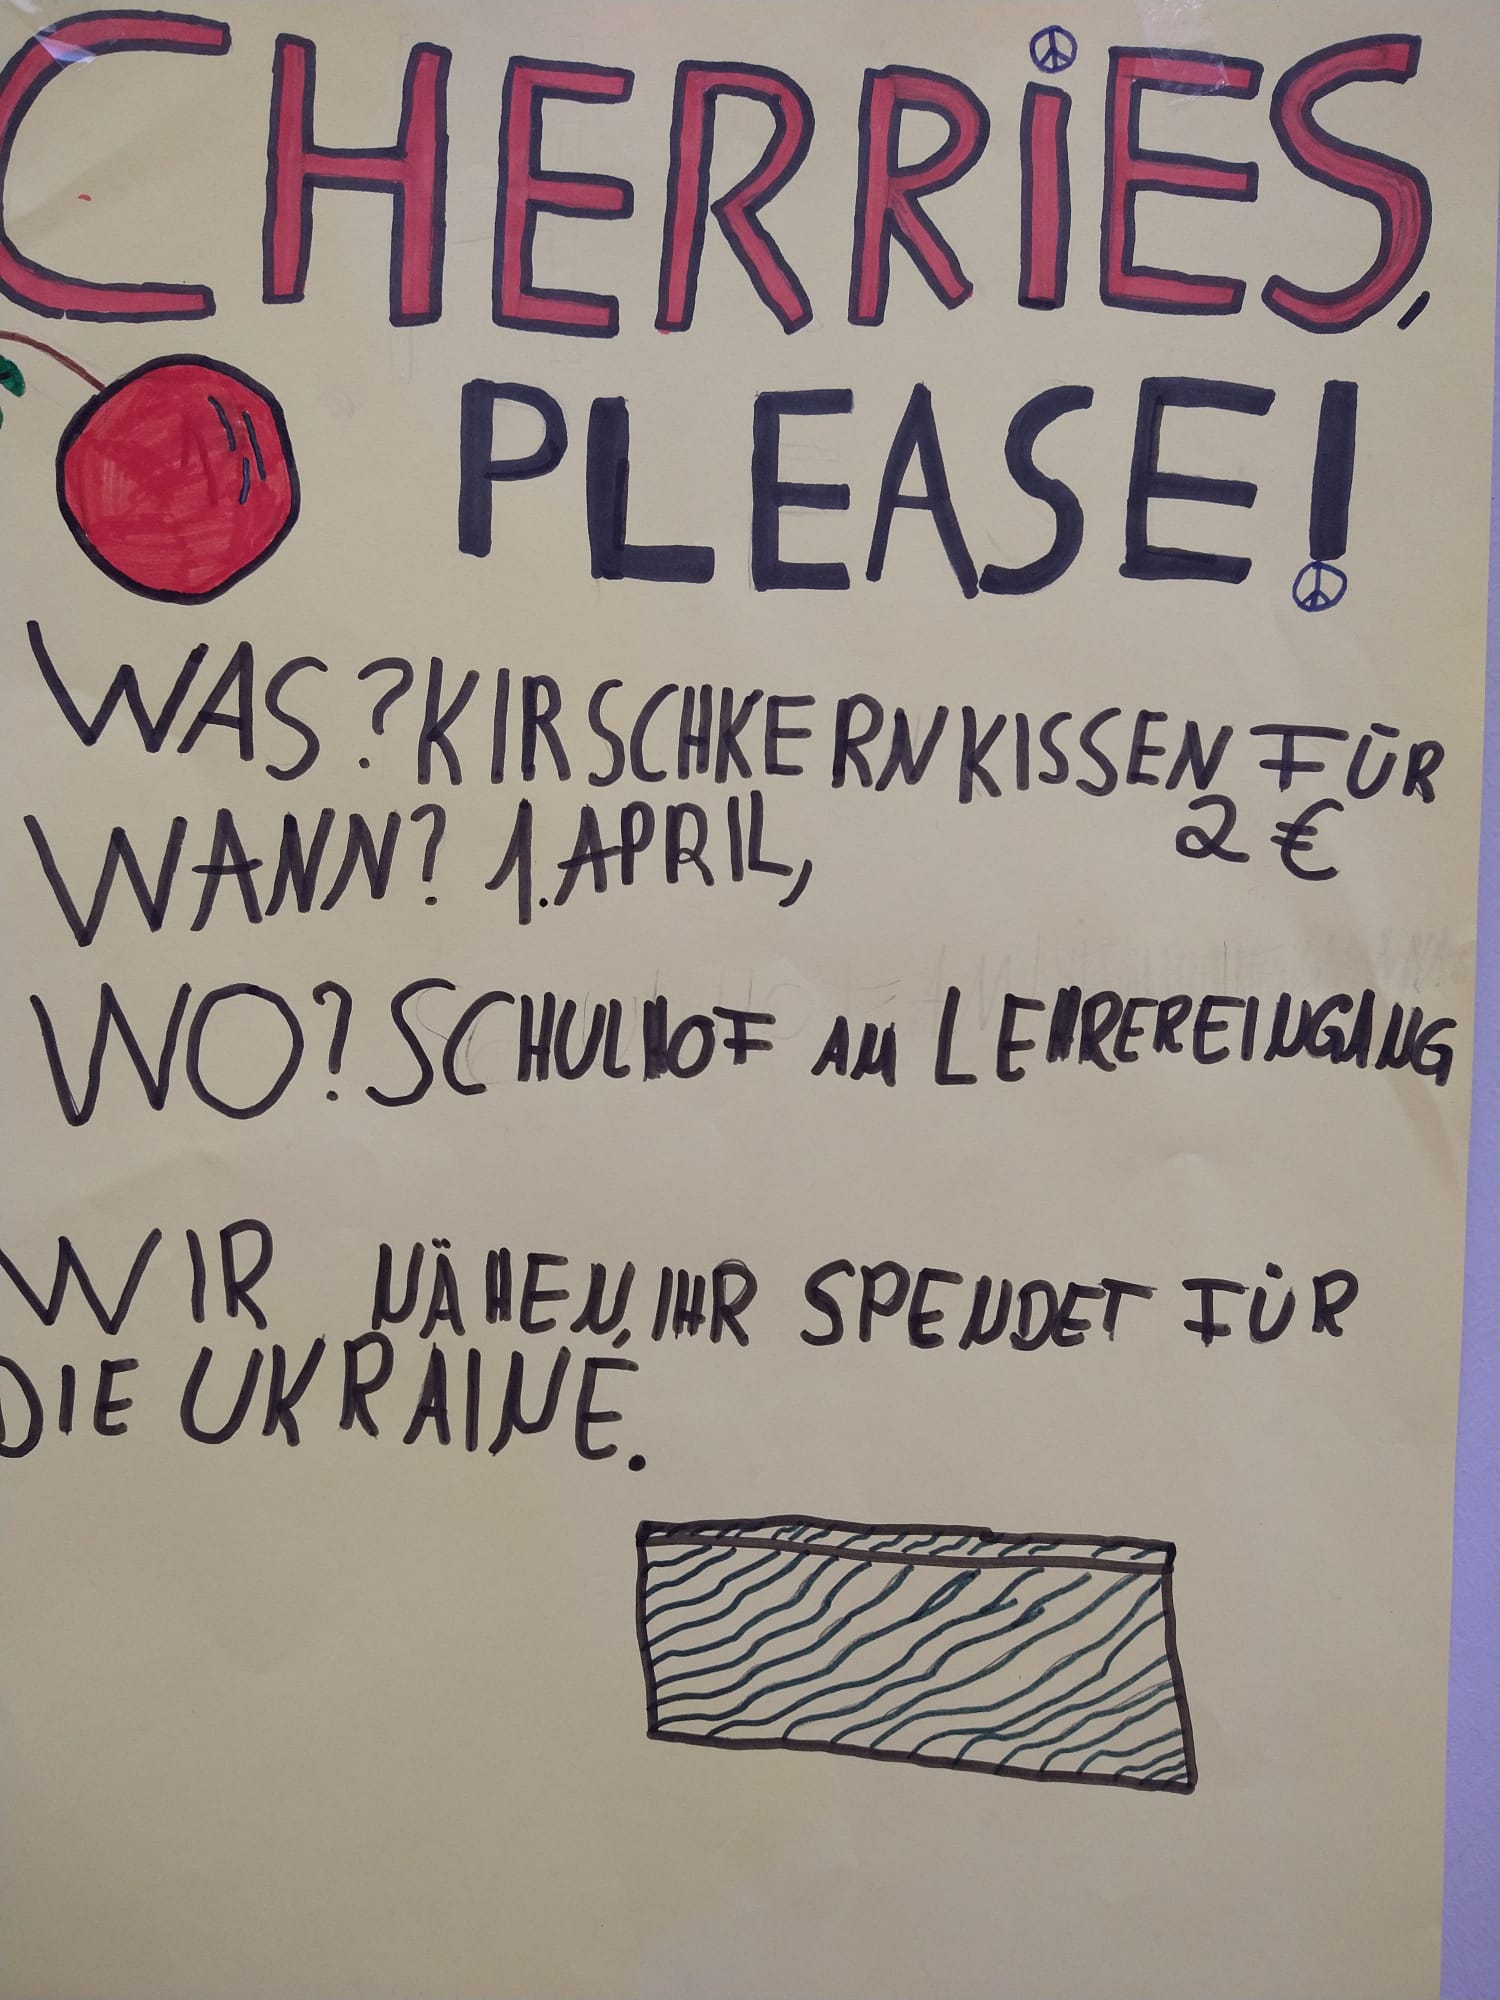 CHERRiES,
PLEASE!
WAS? KIRSCHKERNKISSEN FÜR
2 €
WANN? 1. APRIL,
WO? SCHULHOF AM LEHREREINGANG
WIR NÄHEN, IHR SPENDET FÜR
DIE UKRAINE.